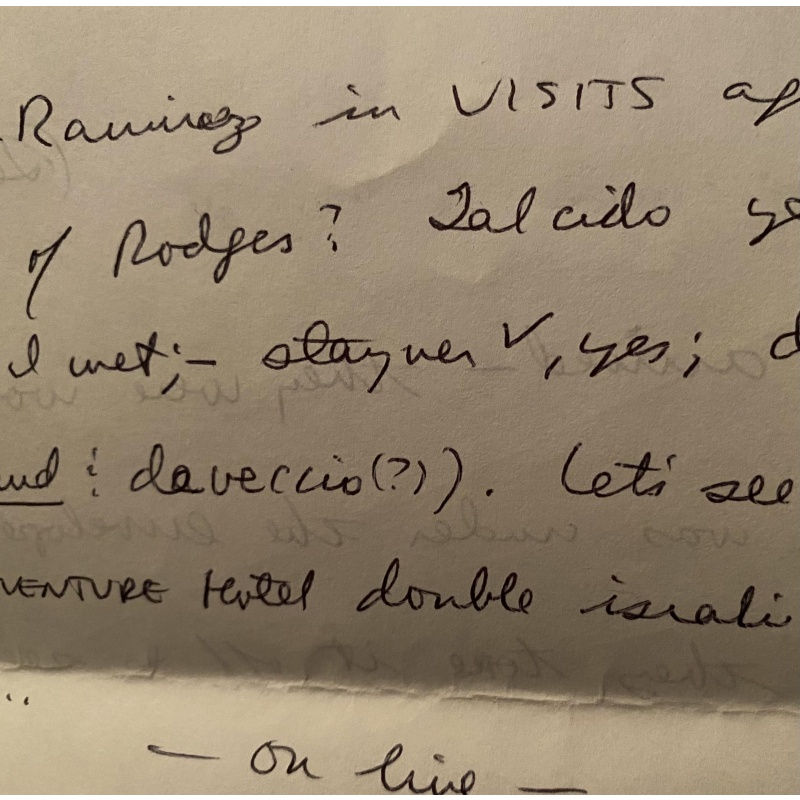 Ramirez in VISITS
of Rodges? Salcido
I met;- stayner ✓, yes;
& daveccio(?)). Let's see
VENTURE Hotel double israli
..
— on line —